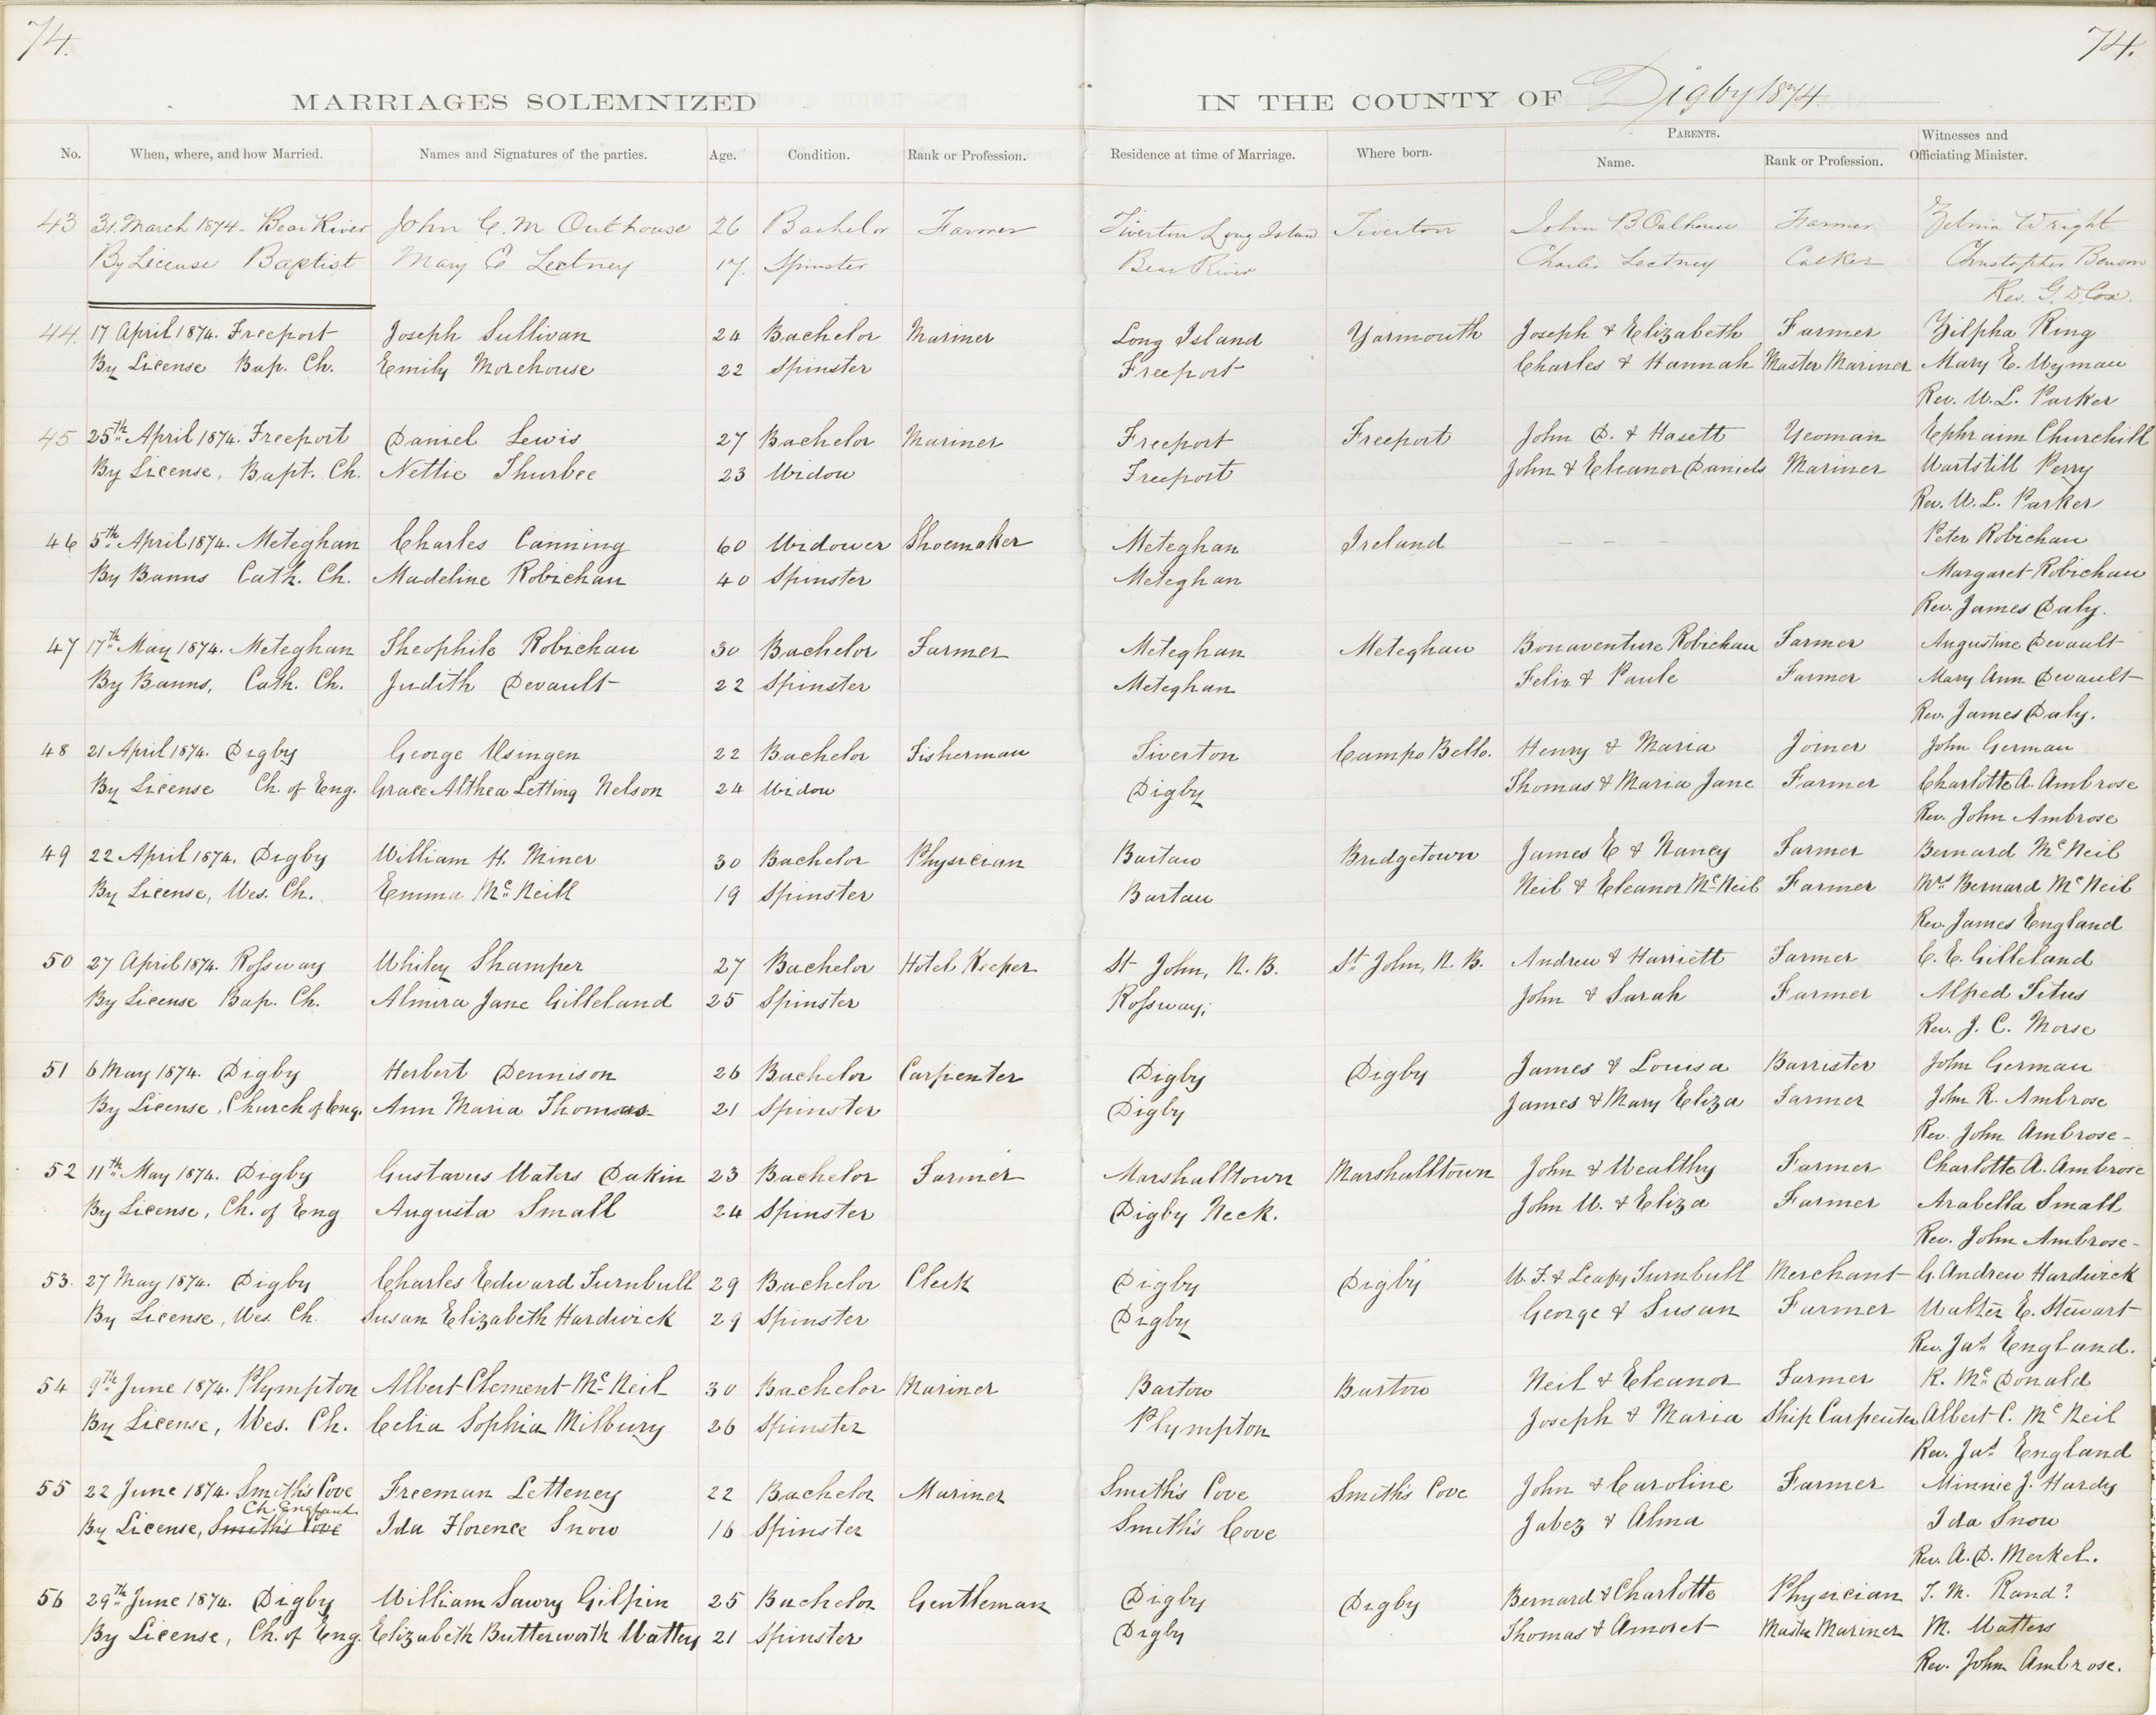 74.
74.
MARRIAGES SOLEMNIZED
IN THE COUNTY OF Digby 1874
No. When, where, and how Married. Names and Signatures of the parties. Age. Condition. Rank or Profession. Residence at time of Marriage. Where born. PARENTS. Name. Rank or Profession. Witnesses and Officiating Minister.
43 31 March 1874 - Bear River John C. M Outhouse 26 Bachelor Farmer Tiverton Long Island Tiverton John B Farmer Zelmia Wright
By License Baptist Mary E Lectney 17. Spinster Bear River Charles Lectney Calker Christopher Benson
Rev. G. D Cox.
44. 17 April 1874. Freeport Joseph Sullivan 24 Bachelor Mariner Long Island Yarmouth Joseph & Elizabeth Farmer Zilpha Ring
By License Bap. Ch. Emily Morehouse 22 Spinster Freeport Charles & Hannah Master Mariner Mary E. Wyman
Rev. W. L. Parker
45 25th April 1874. Freeport Daniel Lewis 27 Bachelor Mariner Freeport Freeport John D. & Hasett Yeoman Ephraim Churchill
By License, Bapt. Ch. Nettie Thurbee 23 Widow Freeport John & Eleanor Daniels Mariner Wartstill Perry
Rev. W. L. Parker
46 5th April 1874. Meteghan Charles Canning 60 Widower Shoemaker Meteghan Ireland — — — Peter Robichau
By Banns Cath. Ch. Madeline Robichau 40 Spinster Meteghan Margaret Robichau
Rev. James Daly.
47 17th May 1874. Meteghan Theophile Robichau 30 Bachelor Farmer Meteghan Meteghan Bonaventure Robichau Farmer Augustine Devault
By Banns, Cath. Ch. Judith Devault 22 Spinster Meteghan Felix & Paule Farmer Mary Ann Devault
Rev. James Daly.
48 21 April 1874. Digby George Usingen 22 Bachelor Fisherman Tiverton Campo Bello. Henry & Maria Joiner John German
By License Ch. of Eng. Grace Althea Letting Nelson 24 Widow Digby Thomas & Maria Jane Farmer Charlotte A. Ambrose
Rev. John Ambrose
49 22 April 1874. Digby William H. Miner 30 Bachelor Physician Bartow Bridgetown James E & Nancy Farmer Bernard McNeil
By License, Wes. Ch. Emma McNeill 19 Spinster Bartow Neil & Eleanor McNeil Farmer Mrs Bernard McNeil
Rev. James England
50 27 April 1874. Rossway Whiley Shamper 27 Bachelor Hotel Keeper St John, N. B. St John, N. B. Andrew & Harriett Farmer C. E. Gilleland
By License Bap. Ch. Almira Jane Gilleland 25 Spinster Rossway; John & Sarah Farmer Alfred Titus
Rev. J. C. Morse
51 6 May 1874. Digby Herbert Dennison 26 Bachelor Carpenter Digby Digby James & Louisa Barrister John German
By License, Church of Eng. Ann Maria Thomas 21 Spinster Digby James & Mary Eliza Farmer John R. Ambrose
Rev. John Ambrose -
52 11th May 1874. Digby Gustavus Waters Dakin 23 Bachelor Farmer Marshalltown Marshalltown John & Wealthy Farmer Charlotte A. Ambrose
By License, Ch. of Eng Augusta Small 24 Spinster Digby Neck. John W. & Eliza Farmer Arabella Small
Rev. John Ambrose -
53. 27 May 1874. Digby Charles Edward Turnbull 29 Bachelor Clerk Digby Digby W. F. & Leafy Turnbull Merchant G. Andrew Hardwick
By License, Wes. Ch. Susan Elizabeth Hardwick 29 Spinster Digby George & Susan Farmer Walter E. Stewart
Rev. Jas England.
54 9th June 1874. Plympton Albert Clement McNeil 30 Bachelor Mariner Bartow Bartow Neil & Eleanor Farmer R. McDonald
By License, Wes. Ch. Celia Sophia Milbury 26 Spinster Plympton Joseph & Maria Ship Carpenter Albert C. McNeil
Rev. Jas England
55 22 June 1874. Smith's Cove Freeman Letteney 22 Bachelor Mariner Smith's Cove Smith's Cove John & Caroline Farmer Minnie J. Hardy
Ch. England
By License, Smith's Cove Ida Florence Snow 16 Spinster Smith's Cove Jabez & Alma Ida Snow
Rev. A. D. Merkel.
56 29th June 1874. Digby William Sawry Gilpin 25 Bachelor Gentleman Digby Digby Bernard & Charlotte Physician T. M. Rand?
By License, Ch. of Eng. Elizabeth Butterworth Watters 21 Spinster Digby Thomas & Amoret Master Mariner M. Watters
Rev. John Ambrose.